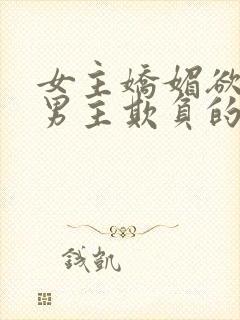 女主嬌媚欲
男主欺負的
錢凱